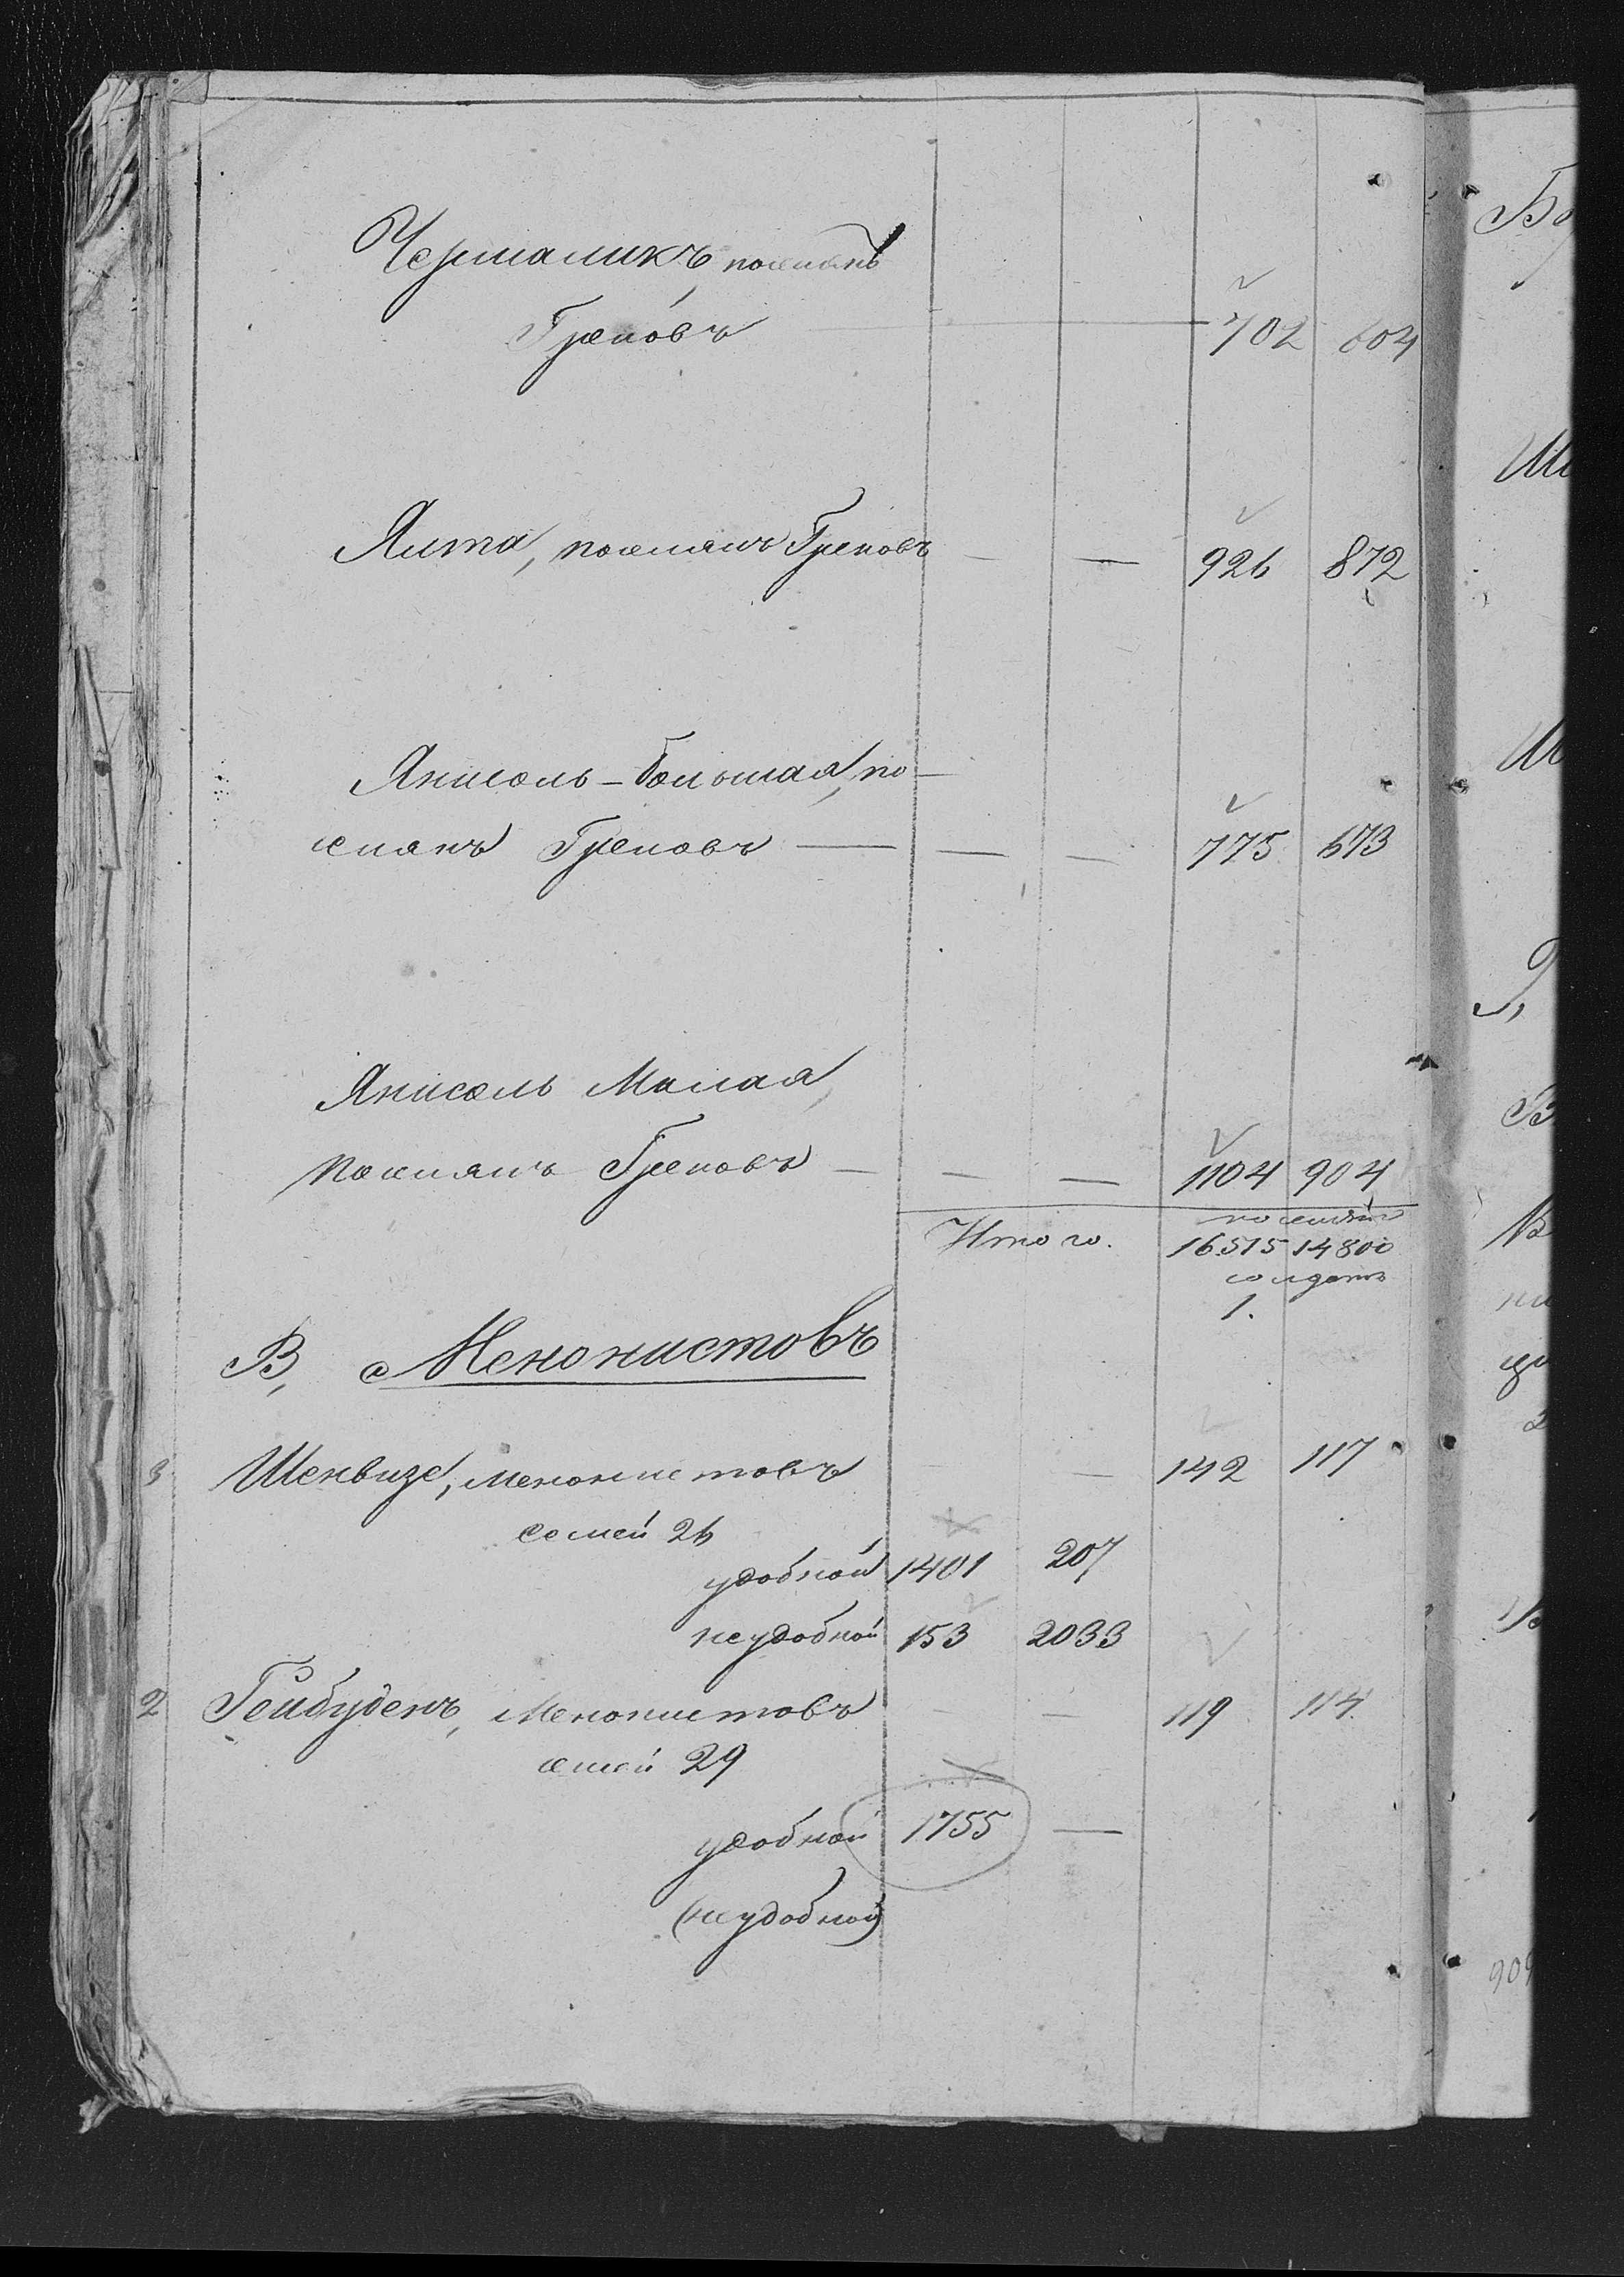 Чермаликъ, поселянъ
Грековъ — 702 604
Ялта, поселянъ Грековъ — — 926 872
Янисоль - большая, по-
селянъ Грековъ — — — 775 673
Янисоль Малая,
Поселянъ Грековъ — — — 1104 904
поселянъ
Итого. 16515 14800
солдатъ
1.
В, Менонистовъ
Шенвизе, Менонистовъ — — 142 117
семей 26
удобной 1401 207
неудобной 153 2033
2 Гейбуденъ, Менонистовъ — — 119 114
семей 29
удобной 1755 —
(неудобной)